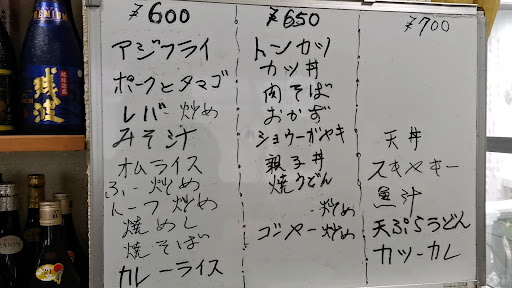 ¥600
アジフライ
ポークとタマゴ
レバー炒め
みそ汁
オムライス
ふー炒め
トーフ炒め
焼めし
焼そば
カレーライス
¥650
トンカツ
カツ丼
肉そば
おかず
ショウーガヤキ
親子丼
焼うどん
炒め
ゴーヤー炒め
¥700
天丼
スキヤキー
魚汁
天ぷらうどん
カツーカレ
PREMIUM
残波